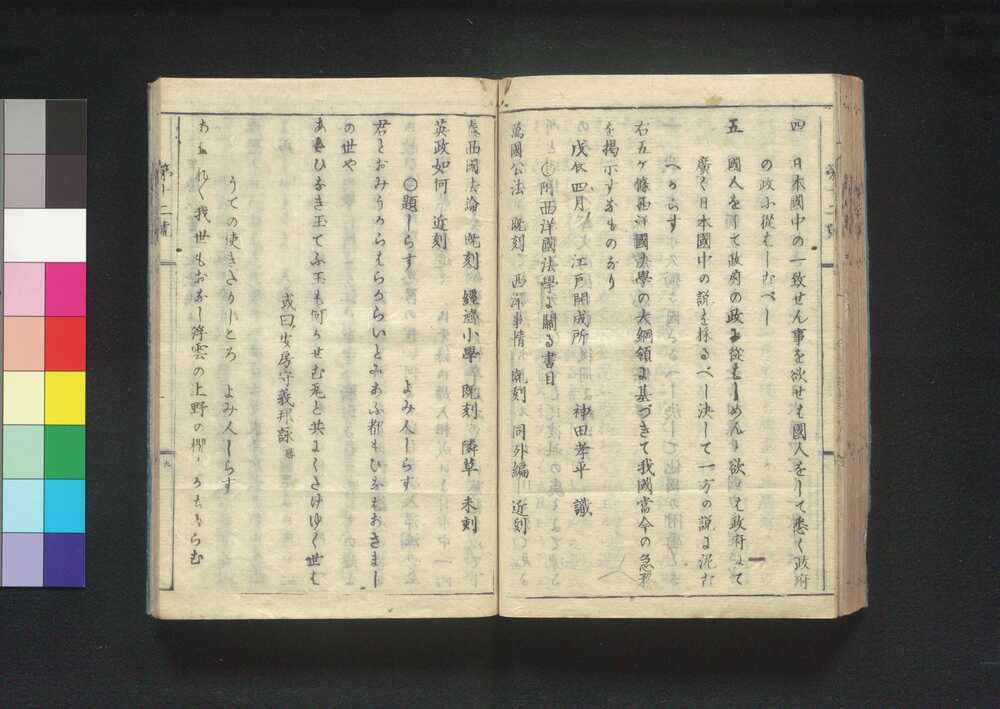 四　日本國中の一致せん事を欲せも國人をして悉く政府
の政に從もしむべし
五　國人を して政府の政に從もしめんと欲 も政府 て
廣く日本國中の説を採るべし決して一方の説に泥む
へからす
右五ヶ條も西洋國法學の大綱領に基づきて我國當今の急務
を掲示するものなり
戊辰四月　江戸開成所　神田孝平　識
○附西洋國法學に關る書目
萬國公法　既刻　西洋事情　既刻　同外編　近刻
泰西國法論　既刻　經濟小學　既刻　隣草　未刻
英政如何　近刻
○題しらす　よみ人しらす
君とおみうからもらからいとみあふ都もひなもおさまし
の世や
あもひなき玉てふ玉も何かせむ瓦と共にくたけゆく世も
或曰安房守義邦詠
うての使きたりしところ　よみ人しらす
あ れ 我世もおなし浮雲の上野の櫻 ちるらむ
第十二輯
第十二輯
九